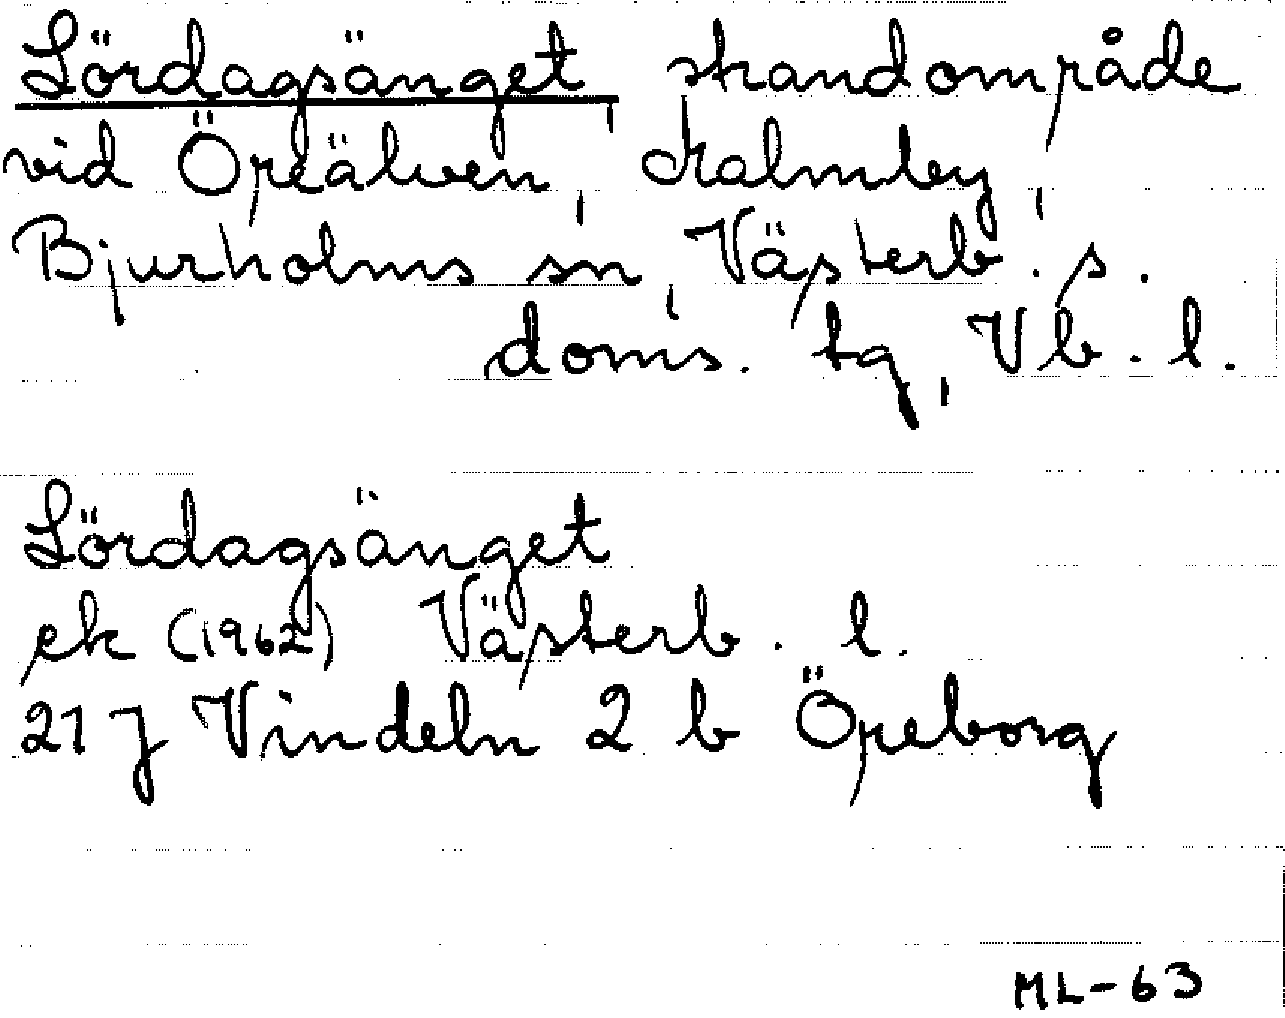 Lördagsänget, strandområde
vid Öreälven, Kalmby,
Bjurholms sn, Västerb. s.
doms. tg, Vb. l.
Lördagsänget
ek (1962) Västerb. l.
21 J Vindeln 2 b Öreborg
ML-63